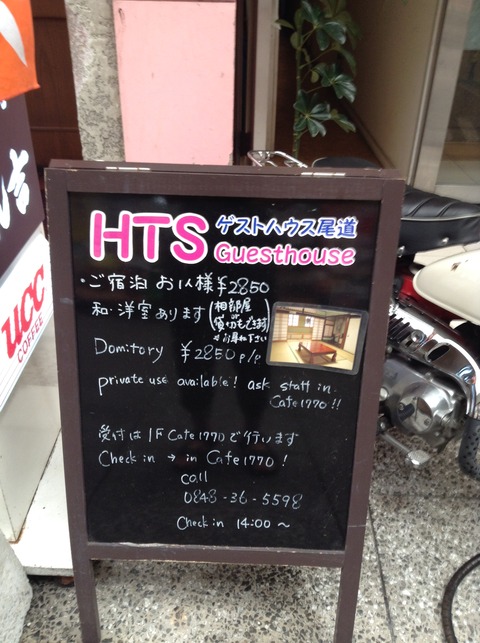 HTS ゲストハウス尾道
Guesthouse
・ご宿泊 お1人様¥2850
和・洋室あります(相部屋
or
貸切もできます)
Domitory ¥2850 p/p
private use available! ask staff in
Cafe1770!!
受付は1F Cafe1770で行います
Check in → in Cafe1770!
call
0848-36-5598
Check in 14:00〜
UCC
COFFEE